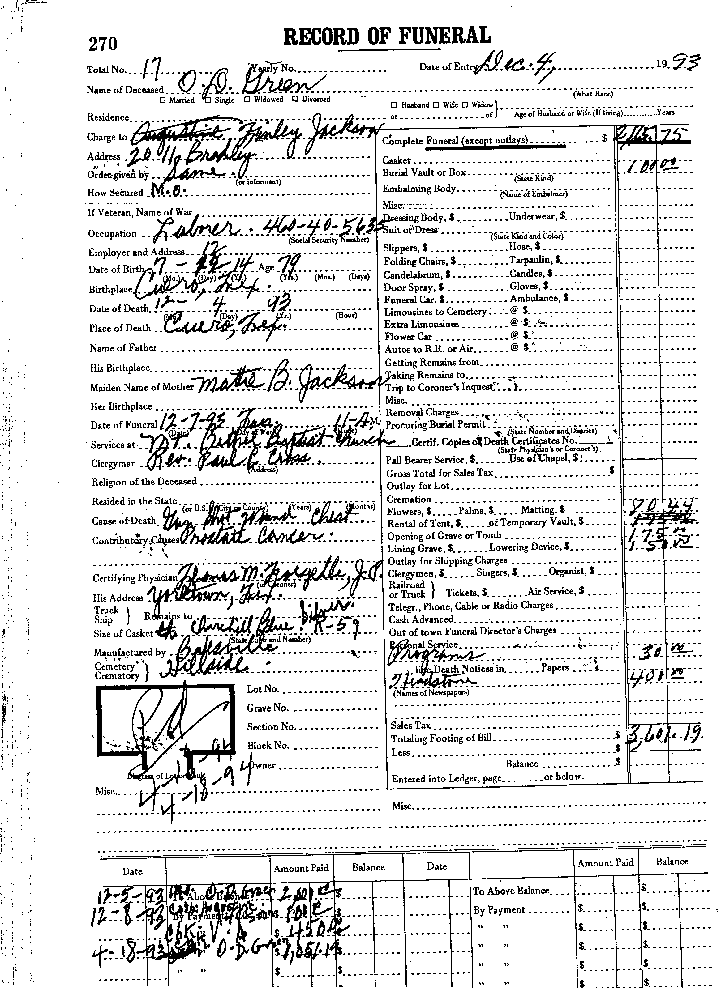 270
RECORD OF FUNERAL
Total No. 17 Yearly No.
Date of Entry Dec. 4, 1993
Name of Deceased O. D. Green
(What Race)
☐ Married ☐ Single ☐ Widowed ☐ Divorced
☐ Husband ☐ Wife ☐ Widow
or of Age of Husband or Wife (If living) Years
Residence
Charge to Finley Jackson
Address
Order given by Same
(or informant)
How Secured
If Veteran, Name of War
Occupation Labner. 460-40-5635
(Social Security Number)
Employer and Address
Date of Birth 7 - 14 Age 79
(Mo.) (Day) (Yr.) (Yrs.) (Mos.) (Days)
Birthplace Cuero, Tex.
Date of Death 12- 4 93
(Mo.) (Day) (Yr.) (Hour)
Place of Death Cuero, Tex.
Name of Father
His Birthplace
Maiden Name of Mother Mattie B. Jackson
Her Birthplace
Date of Funeral 12-7-93
Services at Mt. Bethel Baptist Church
Clergyman Rev. Paul E. Cross
(Address)
Religion of the Deceased
Resided in the State
(or U.S.) (City or County) (Years) (Months)
Cause of Death Gun Shot Wound Chest
Contributory Causes Prostate Cancer
Certifying Physician Thomas M.
His Address Yorktown, Tex.
Truck Ship } Remains to
Size of Casket Blue Silver K-59
(State Color and Number)
Manufactured by
Cemetery Crematory } Hillside
Lot No.
Grave No.
Section No.
Block No.
Owner
Diagram of Lot or Vault
Pd
4-18-94
Misc.
Complete Funeral (except outlays) $ 75
Casket
Burial Vault or Box 100 00
(State Kind)
Embalming Body
(Name of Embalmer)
Misc.
Dressing Body, $ Underwear, $
Suit or Dress
(State Kind and Color)
Slippers, $ Hose, $
Folding Chairs, $ Tarpaulin, $
Candelabrum, $ Candles, $
Door Spray, $ Gloves, $
Funeral Car, $ Ambulance, $
Limousines to Cemetery @ $
Extra Limousines @ $
Flower Car @ $
Autos to R.R. or Air @ $
Getting Remains from
Taking Remains to
Trip to Coroner's Inquest
Misc.
Removal Charges
Procuring Burial Permit
(State Number and District)
Certif. Copies of Death Certificates No.
(State Physician's or Coroner's)
Pall Bearer Service, $ Use of Chapel, $
Gross Total for Sales Tax $
Outlay for Lot
Cremation
Flowers, $ Palms, $ Matting, $ 70 44
Rental of Tent, $ of Temporary Vault, $
Opening of Grave or Tomb 175
Lining Grave, $ Lowering Device, $
Outlay for Shipping Charges
Clergymen, $ Singers, $ Organist, $
Railroad or Truck } Tickets, $ Air Service, $
Telegr., Phone, Cable or Radio Charges
Cash Advanced
Out of town Funeral Director's Charges
Personal Service
Programs 30 00
Death Notices in Papers
Headstone 400 00
(Names of Newspapers)
Sales Tax
Totaling Footing of Bill $ 3,601.19
Less $
Balance $
Entered into Ledger, page or below.
Misc.
Date Amount Paid Balance Date Amount Paid Balance
12-5-93 O. D. Green $ To Above Balance $
12-8-93 By Payment $
$ 450
4-18-93 O. D. Green $ 1,051.19